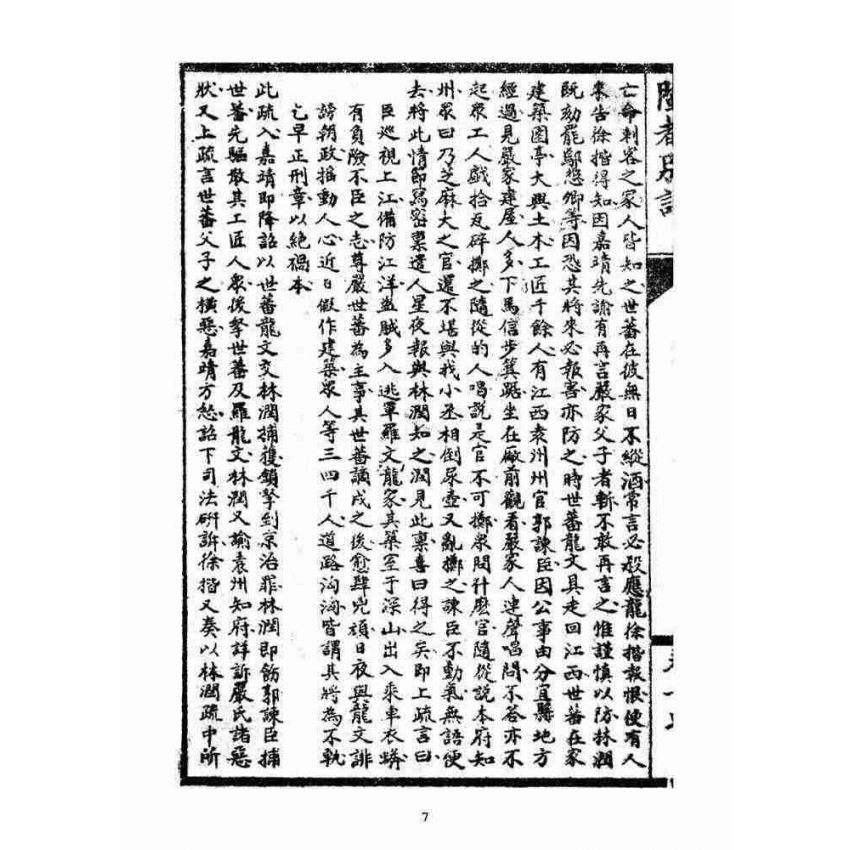 亡命刺客之家人皆知之世蕃在彼無日不縱酒常言必殺應龍徐揩報恨便有人
來告徐揩得知因嘉靖先諭有再言嚴家父子者斬不敢再言之惟謹慎以防林潤
既劾罷鄢懋卿等因恐其將來必報害亦防之時世蕃龍文具走回江西世蕃在家
建築園亭大興土木工匠千餘人有江西袁州州官郭諫臣因公事由分宜縣地方
經過見嚴家建屋人多下馬信步箕踞坐在廠前觀看嚴家人連聲唱問不答亦不
起眾工人戲拾瓦碎擲之隨從的人唱說是官不可擲眾問什麼官隨從說本府知
州眾曰乃芝麻大之官還不堪與我小丞相倒尿壺又亂擲之諫臣不動氣無語便
去將此情即寫密稟遣人星夜報與林潤知之潤見此稟喜曰得之矣即上疏言曰
臣巡視上江備防江洋盜賊多入逃軍羅文龍家其築室于深山出入乘車衣蟒
有負險不臣之志尊嚴世蕃為主事其世蕃謫戍之後愈肆兇頑日夜與龍文誹
謗朝政搖動人心近日假作建築眾人等三四千人道路洶洶皆謂其將為不軌
乞早正刑章以絕禍本
此疏入嘉靖即降詔以世蕃龍文交林潤捕獲鎖拏到京治罪林潤即飭郭諫臣捕
世蕃先驅散其工匠人眾後拏世蕃及羅龍文林潤又諭袁州知府詳訴嚴氏諸惡
狀又上疏言世蕃父子之橫惡嘉靖方怒詔下司法研訴徐揩又奏以林潤疏中所
7